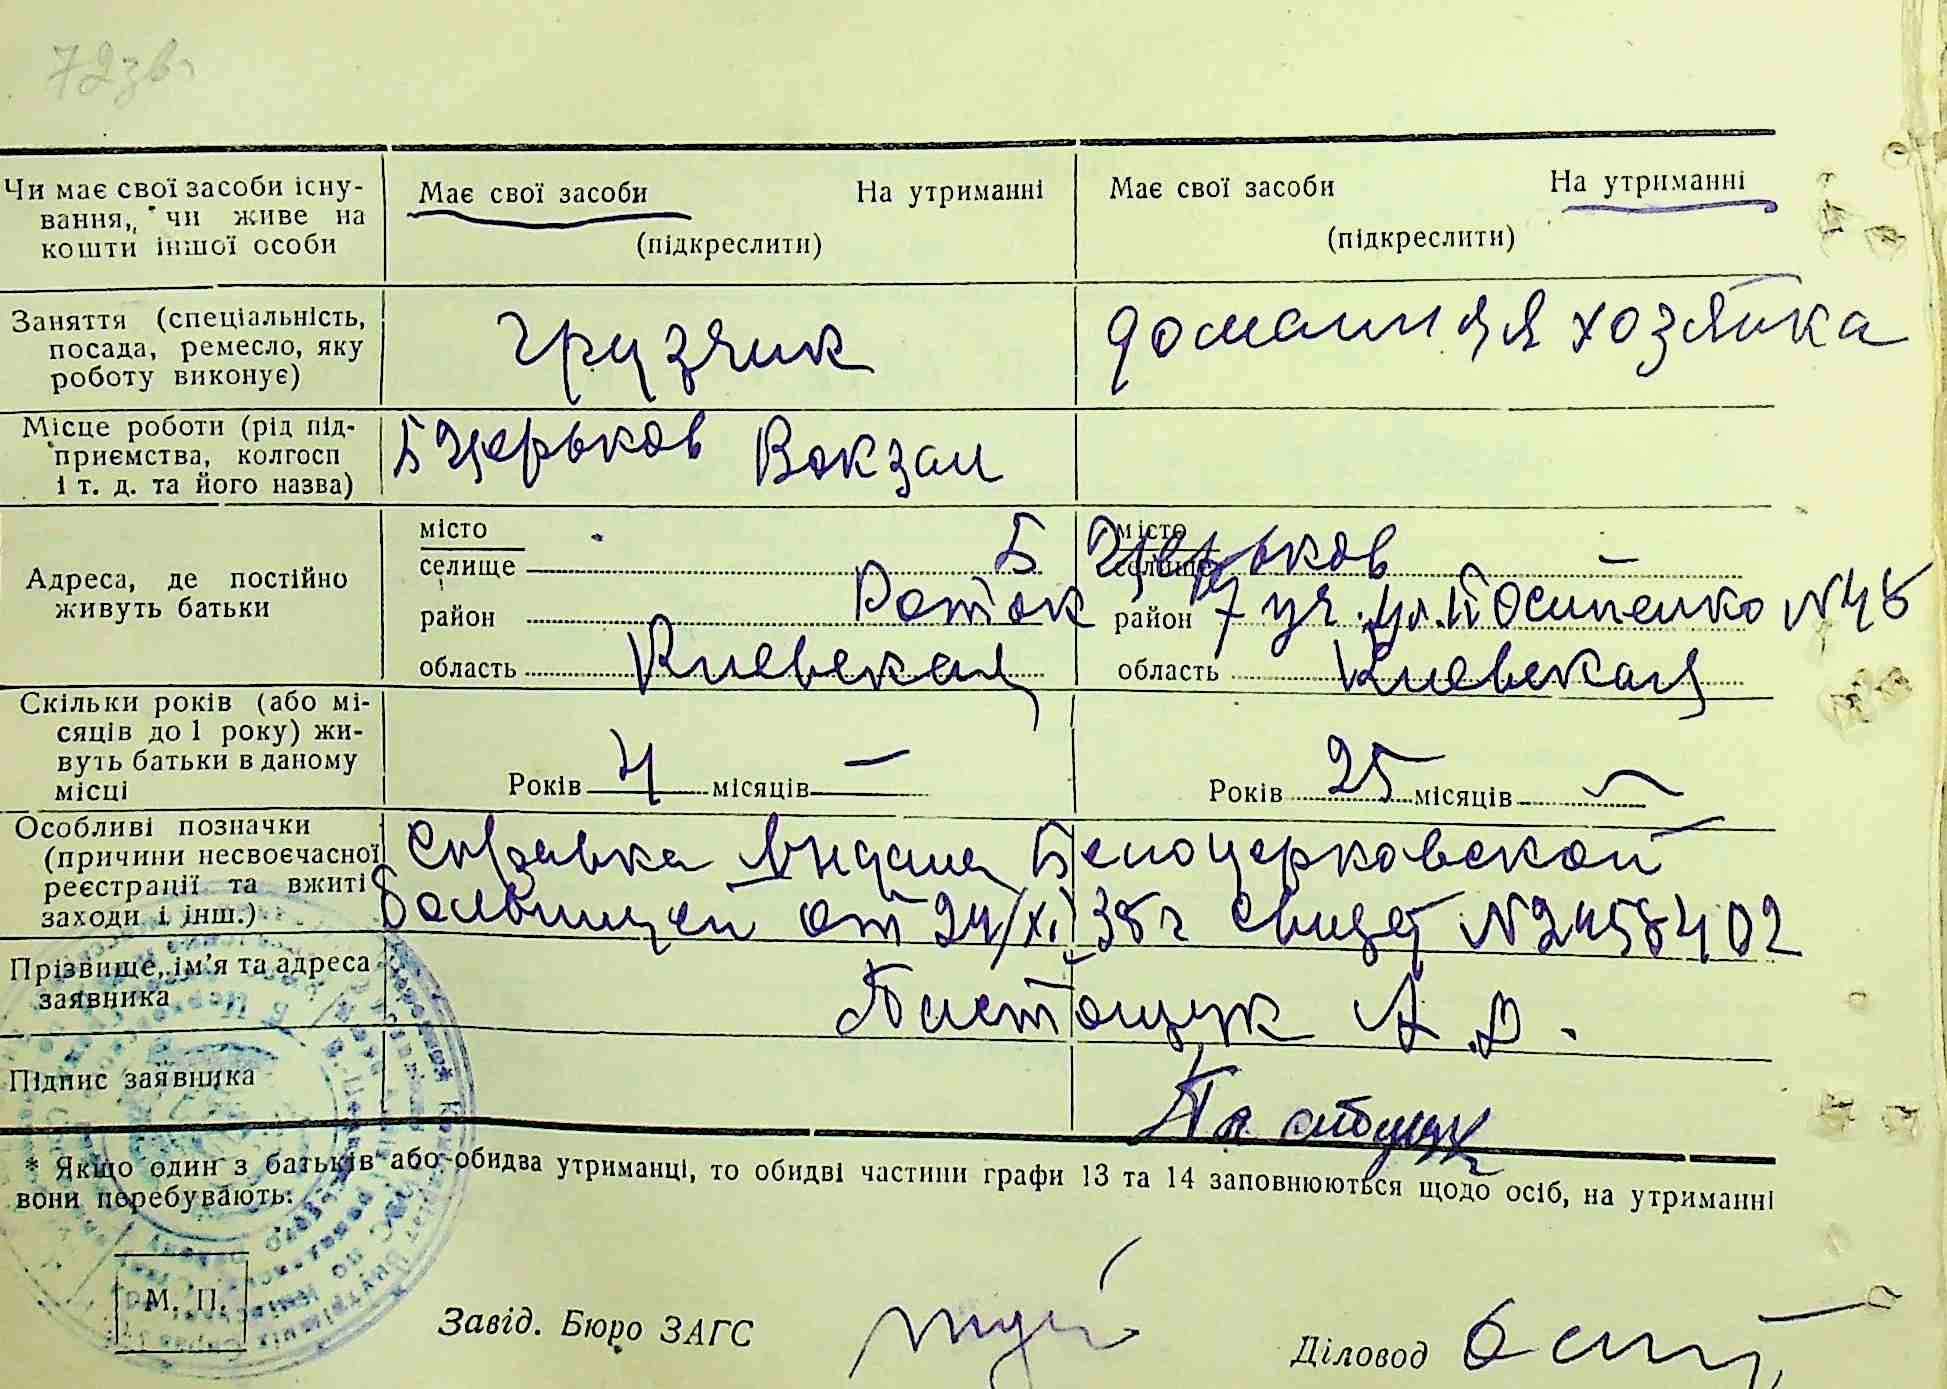 72зв.
Чи має свої засоби існу-
вання, чи живе на
кошти іншої особи
Має свої засоби На утриманні
(підкреслити)
Має свої засоби На утриманні
(підкреслити)
Заняття (спеціальність,
посада, ремесло, яку
роботу виконує)
грузчик
домашняя хозяйка
Місце роботи (рід під-
приємства, колгосп
і т. д. та його назва)
Б Церьков Вокзал
Адреса, де постійно
живуть батьки
місто
селище
район
область Киевская
місто
селище
Б Церьков
Роток 7 уч. ул. Осипенко N 48
район
область Киевская
Скільки років (або мі-
сяців до 1 року) жи-
вуть батьки в даному
місці
Років 4 місяців —
Років 25 місяців —
Особливі позначки
(причини несвоєчасної
реєстрації та вжиті
заходи і інш.)
Справка выдана Белоцерковской
больницей от 24/XI 38г свидет N2458402
Прізвище, ім'я та адреса
заявника
А. Д.
Підпис заявника
* Якщо один з батьків або обидва утриманці, то обидві частини графи 13 та 14 заповнюються щодо осіб, на утриманні
вони перебувають.
М. П.
Завід. Бюро ЗАГС
Діловод